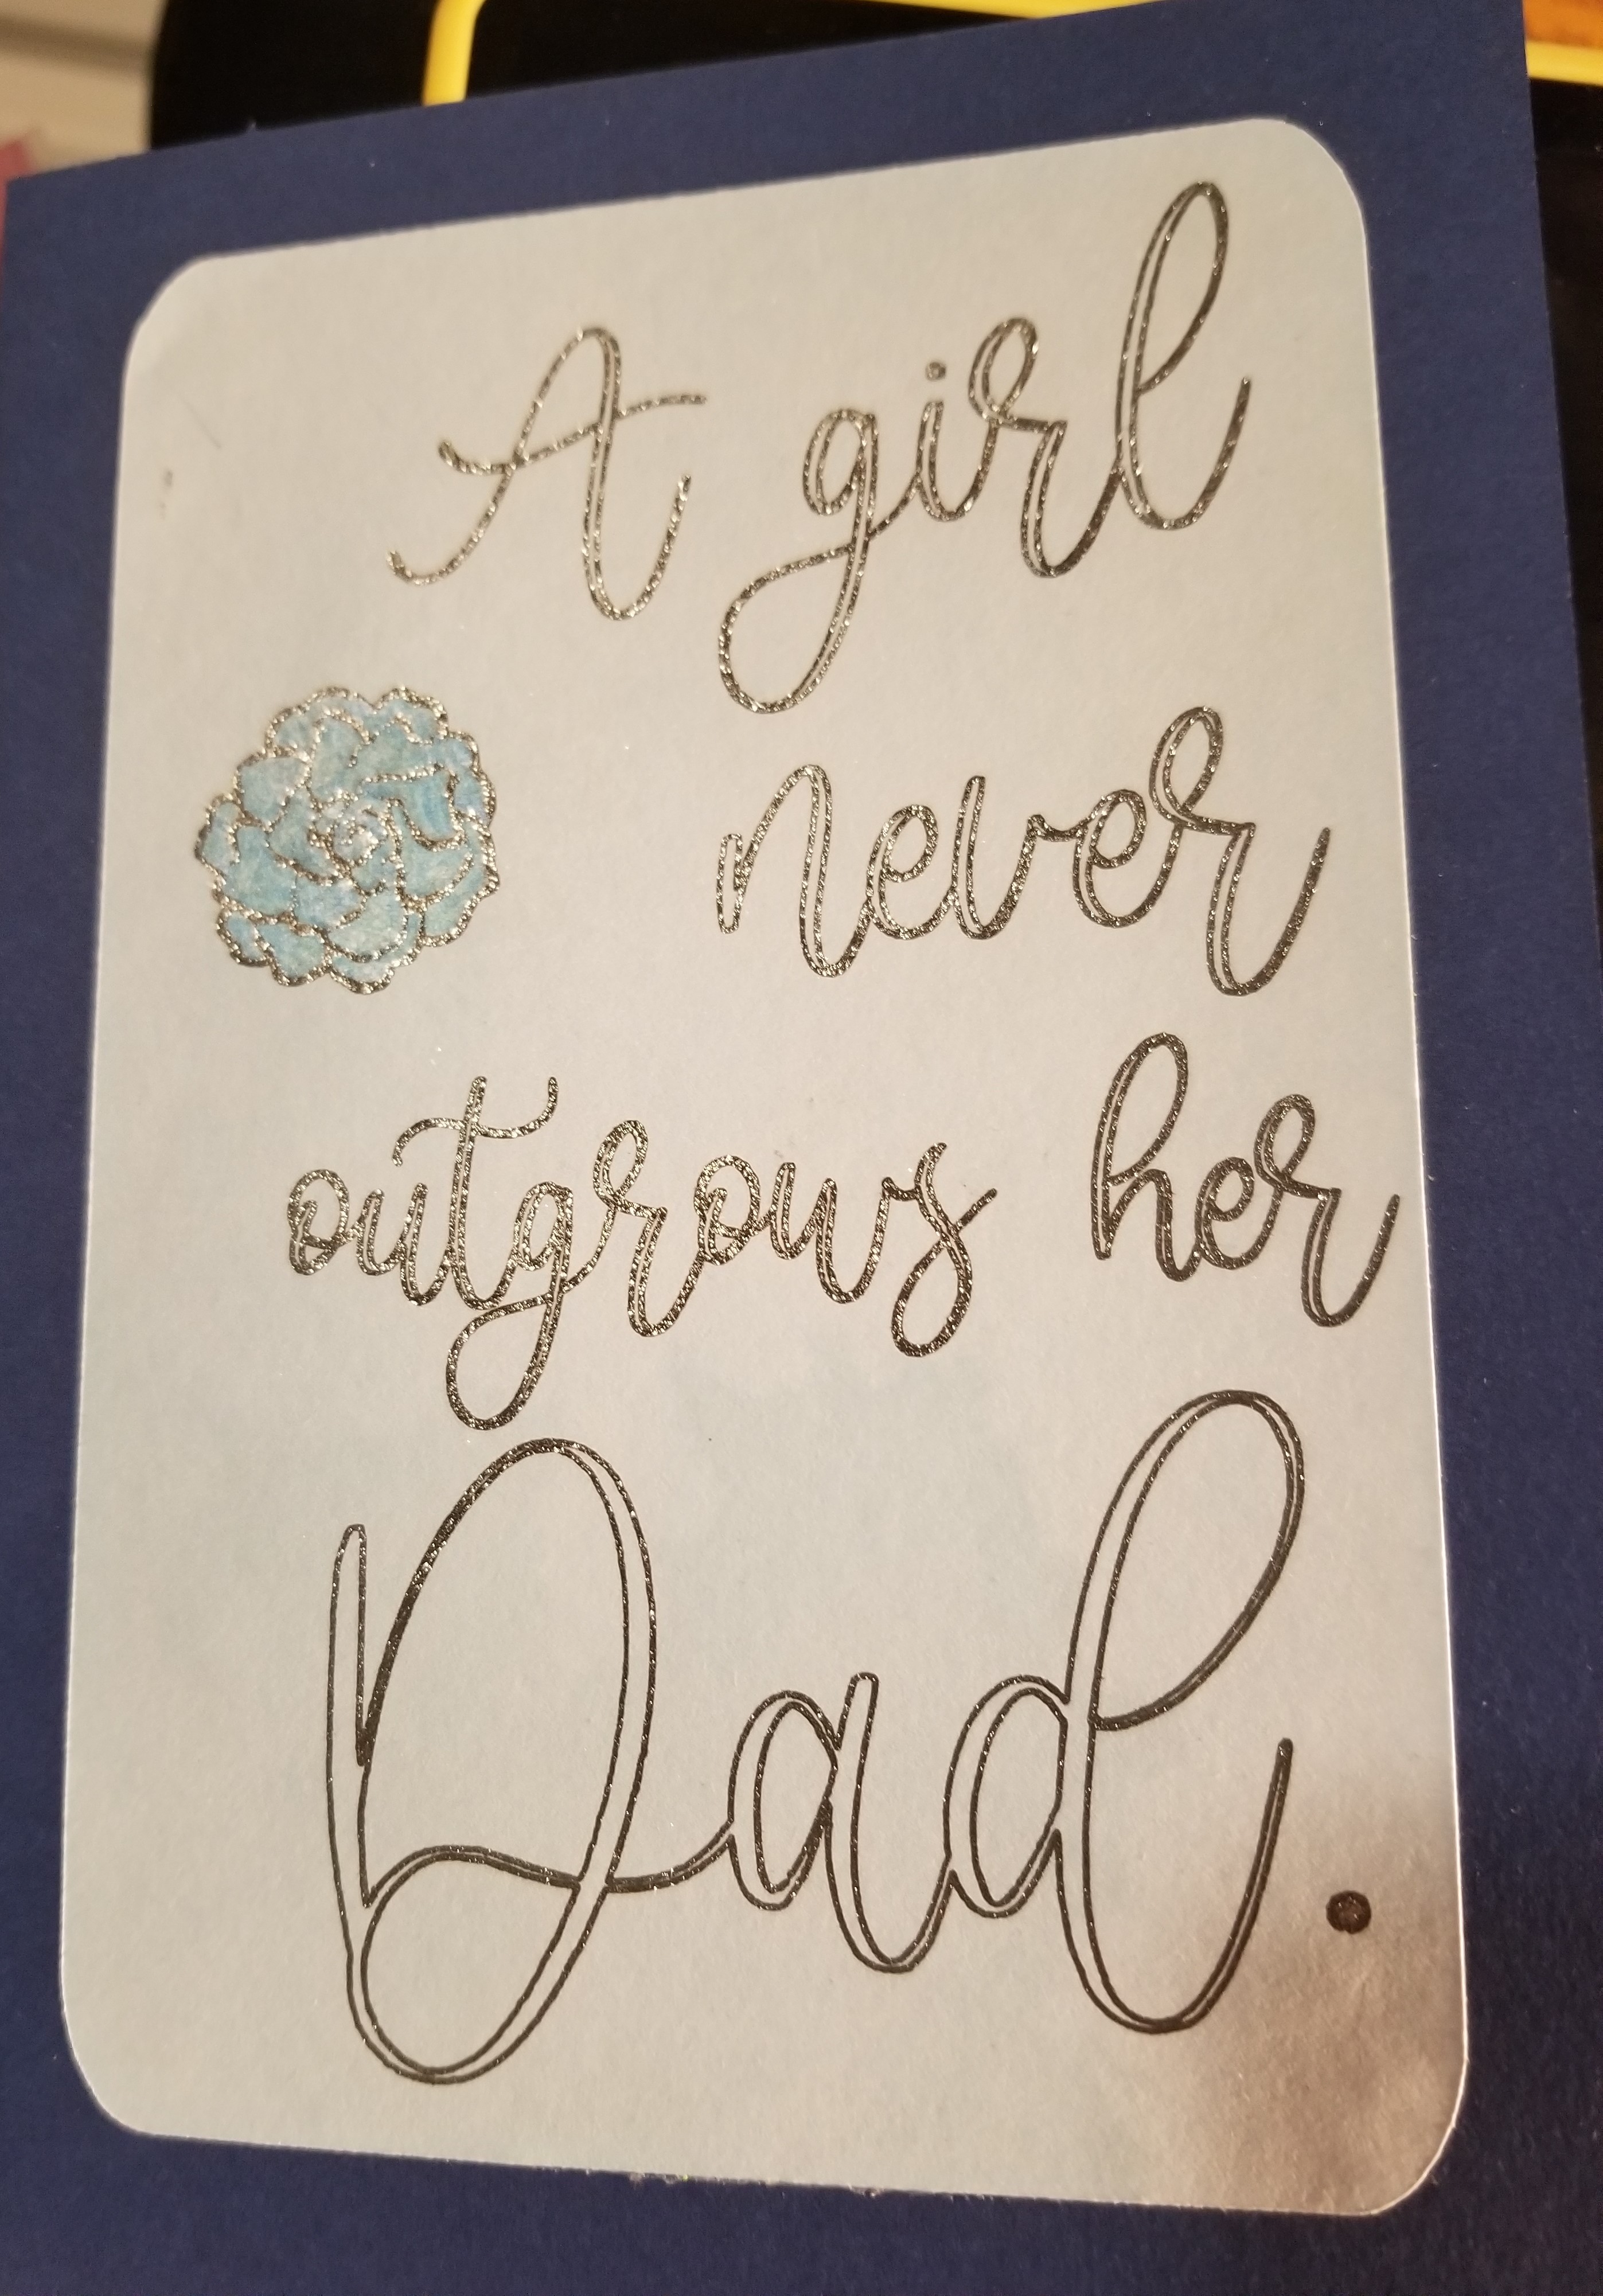 A girl
never
outgrows her
Dad.